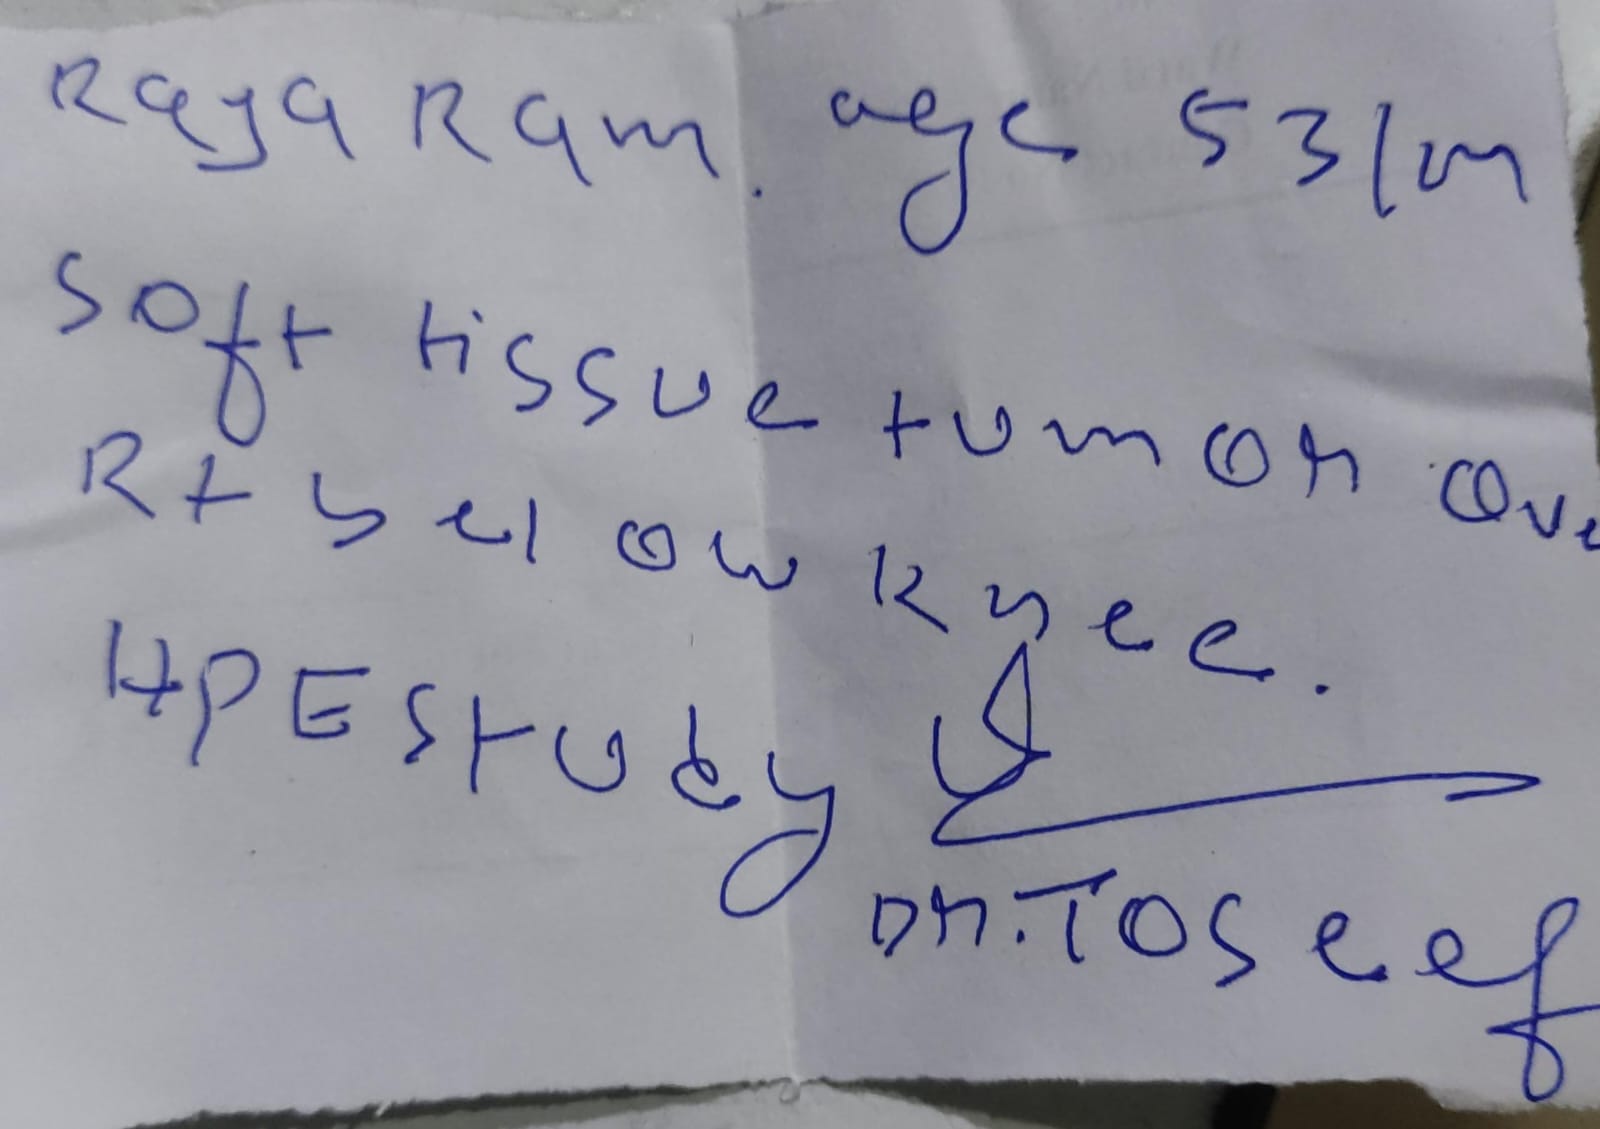 Raja Ram. age 53/m
Soft tissue tumor Ove
Rt below knee.
HPE Study
DR. TOSeef